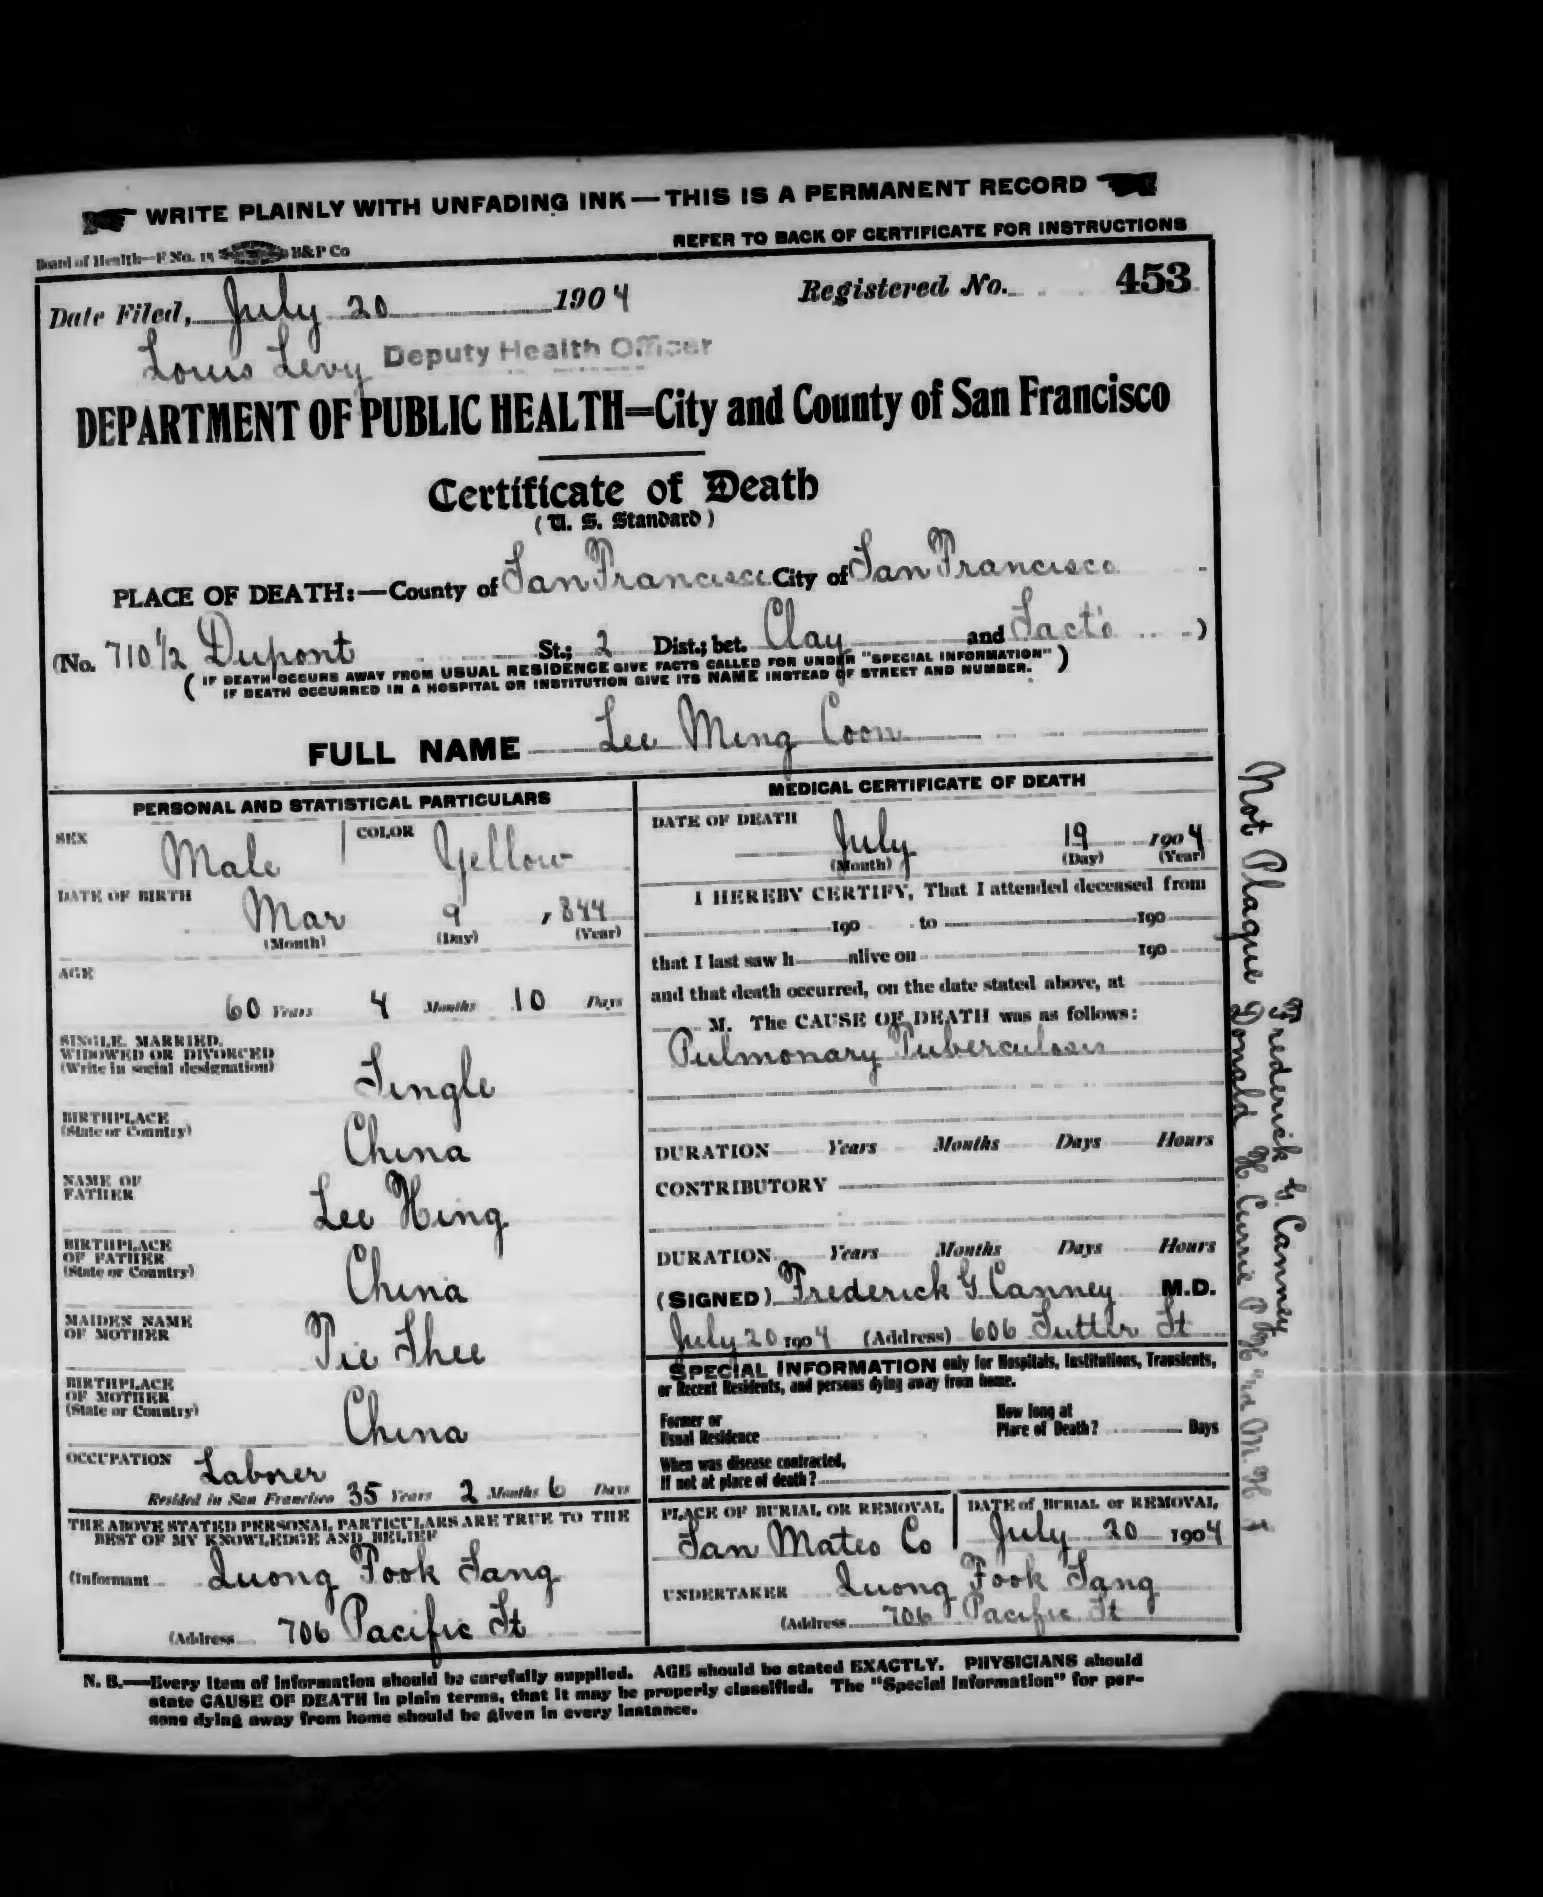 WRITE PLAINLY WITH UNFADING INK — THIS IS A PERMANENT RECORD
Board of Health—F No. 15 H&P Co
REFER TO BACK OF CERTIFICATE FOR INSTRUCTIONS
Date Filed, July 20 1904 Registered No. 453
Louis Levy Deputy Health Officer
DEPARTMENT OF PUBLIC HEALTH=City and County of San Francisco
Certificate of Death
(U. S. Standard)
PLACE OF DEATH:—County of San Francisco City of San Francisco
(No. 710 1/2 Dupont St.; 2 Dist.; bet. Clay and Sact'o )
( IF DEATH OCCURS AWAY FROM USUAL RESIDENCE GIVE FACTS CALLED FOR UNDER "SPECIAL INFORMATION" )
IF DEATH OCCURRED IN A HOSPITAL OR INSTITUTION GIVE ITS NAME INSTEAD OF STREET AND NUMBER.
FULL NAME Lee Ming Coon
PERSONAL AND STATISTICAL PARTICULARS
SEX Male COLOR Yellow
DATE OF BIRTH
Mar 9 , 844
(Month) (Day) (Year)
AGE
60 Years 4 Months 10 Days
SINGLE, MARRIED,
WIDOWED OR DIVORCED
(Write in social designation)
Single
BIRTHPLACE
(State or Country)
China
NAME OF
FATHER
Lee Hing
BIRTHPLACE
OF FATHER
(State or Country)
China
MAIDEN NAME
OF MOTHER
Pie Shee
BIRTHPLACE
OF MOTHER
(State or Country)
China
OCCUPATION Laborer
Resided in San Francisco 35 Years 2 Months 6 Days
THE ABOVE STATED PERSONAL PARTICULARS ARE TRUE TO THE
BEST OF MY KNOWLEDGE AND BELIEF
(Informant Quong Fook Sang
(Address 706 Pacific St
MEDICAL CERTIFICATE OF DEATH
DATE OF DEATH
July 19 1904
(Month) (Day) (Year)
I HEREBY CERTIFY, That I attended deceased from
190 to 190
that I last saw h alive on 190
and that death occurred, on the date stated above, at
M. The CAUSE OF DEATH was as follows:
Pulmonary Tuberculosis
DURATION Years Months Days Hours
CONTRIBUTORY
DURATION Years Months Days Hours
(SIGNED) Frederick G Canney M.D.
July 20 1904 (Address) 606 Sutter St
SPECIAL INFORMATION only for Hospitals, Institutions, Transients,
or Recent Residents, and persons dying away from home.
Former or
Usual Residence
How long at
Place of Death? Days
When was disease contracted,
If not at place of death?
PLACE OF BURIAL OR REMOVAL
San Mateo Co
DATE of BURIAL or REMOVAL
July 20 1904
UNDERTAKER Quong Fook Sang
(Address 706 Pacific St
N. B.—Every item of information should be carefully supplied. AGE should be stated EXACTLY. PHYSICIANS should
state CAUSE OF DEATH in plain terms, that it may be properly classified. The "Special Information" for per-
sons dying away from home should be given in every instance.
Not Plague Frederick G. Canney
Donald H. Currie